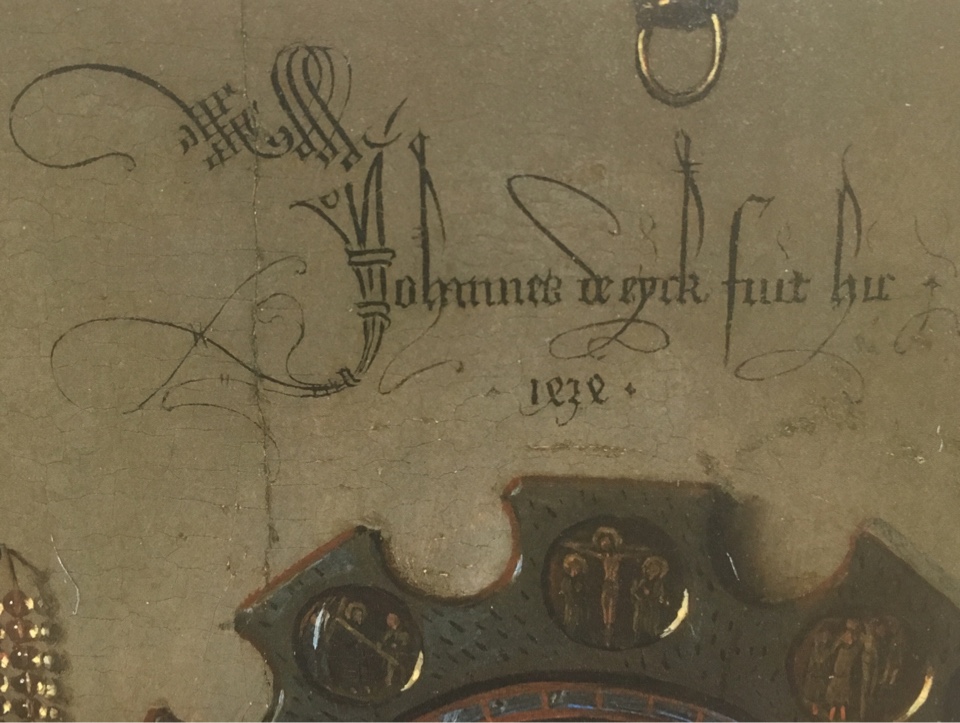 Johannes de eyck fuit hic ·
· 1434 ·